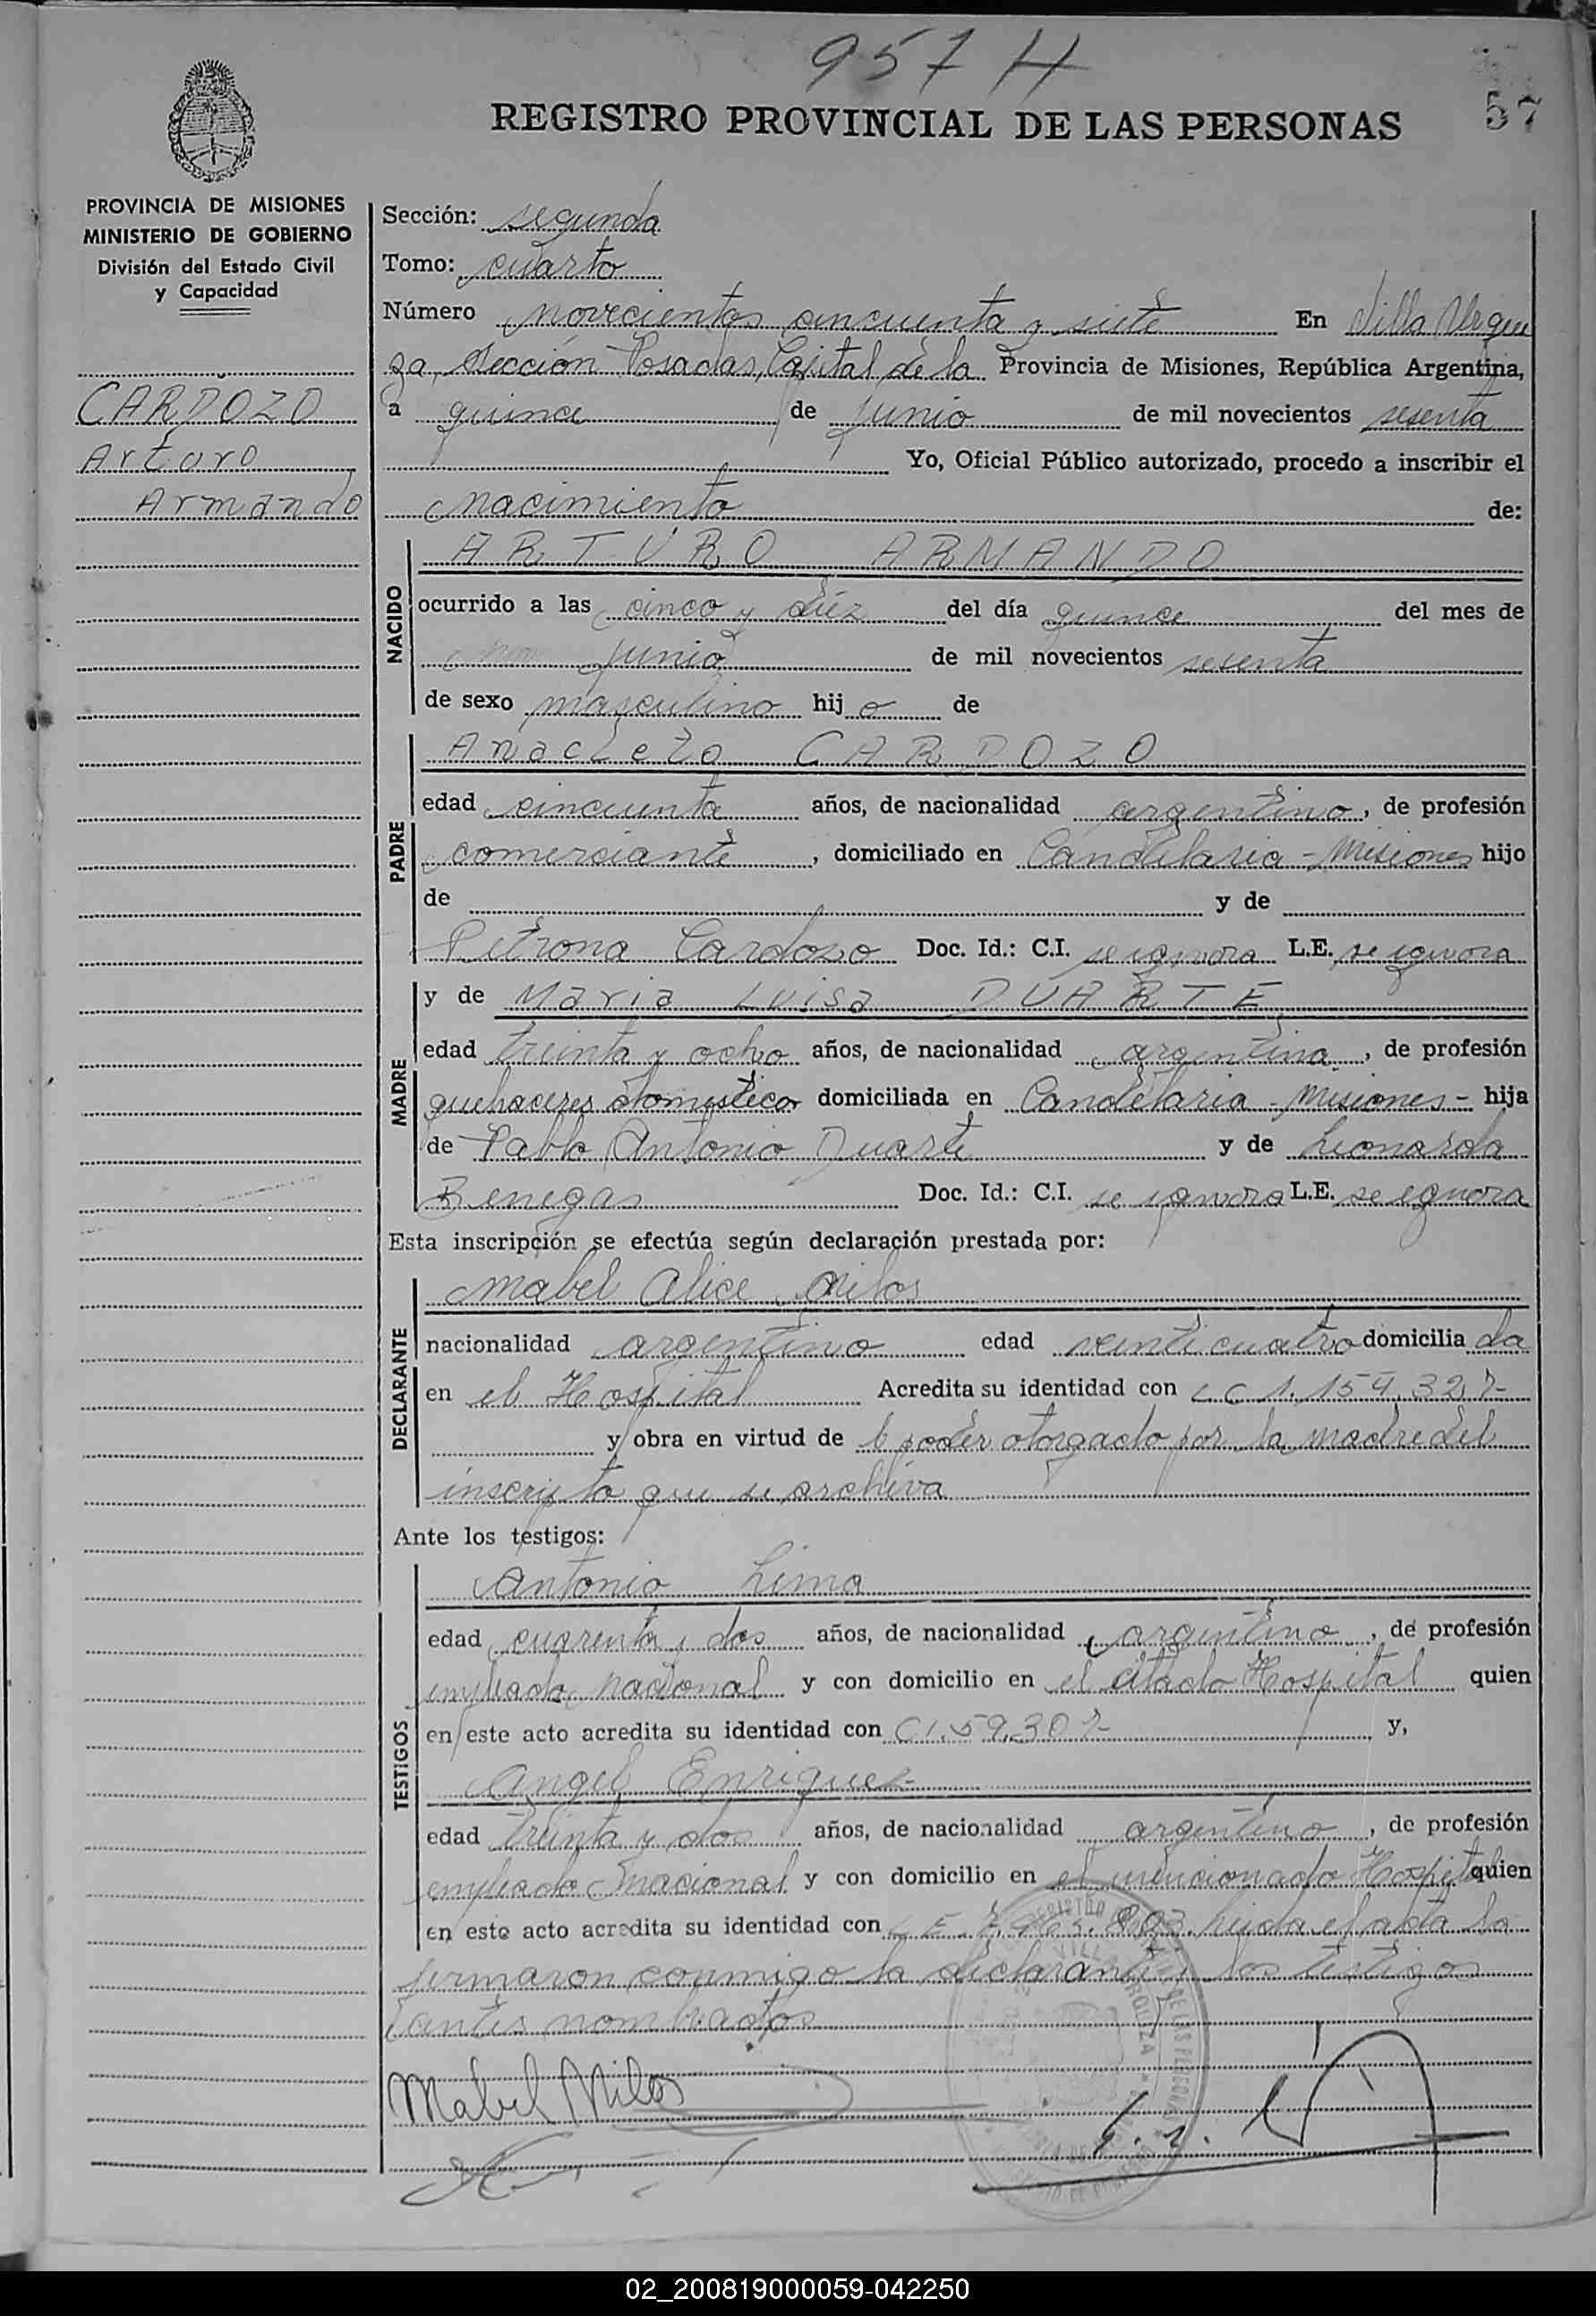 957 H
57
REGISTRO PROVINCIAL DE LAS PERSONAS
PROVINCIA DE MISIONES
MINISTERIO DE GOBIERNO
División del Estado Civil
y Capacidad
CARDOZO
Arturo
Armando
Sección: segunda
Tomo: cuarto
Número novecientos cincuenta y siete En Villa Urqui
za, Sección Posadas, Capital de la Provincia de Misiones, República Argentina,
a quince de junio de mil novecientos sesenta
Yo, Oficial Público autorizado, procedo a inscribir el
nacimiento de:
NACIDO
ARTURO ARMANDO
ocurrido a las cinco y diez del día quince del mes de
junio de mil novecientos sesenta
de sexo masculino hijo de
PADRE
Anacleto CARDOZO
edad cincuenta años, de nacionalidad argentino, de profesión
comerciante, domiciliado en Candelaria - Misiones hijo
de y de
Petrona Cardozo Doc. Id.: C.I. se ignora L.E. se ignora
MADRE
y de Maria Luisa DUARTE
edad treinta y ocho años, de nacionalidad argentina, de profesión
quehaceres domesticos domiciliada en Candelaria - Misiones - hija
de Pablo Antonio Duarte y de Leonarda
Benegas Doc. Id.: C.I. se ignora L.E. se ignora
Esta inscripción se efectúa según declaración prestada por:
DECLARANTE
Mabel Alice Milos
nacionalidad argentino edad veinticuatro domiciliada
en el Hospital Acredita su identidad con L C 1.154.327-
y obra en virtud de poder otorgado por la madre del
inscripto que se archiva
Ante los testigos:
TESTIGOS
Antonio Lima
edad cuarenta y dos años, de nacionalidad argentino, de profesión
empleado nacional y con domicilio en el citado Hospital quien
en este acto acredita su identidad con C I. 59.307- y,
Angel Enriquez
edad treinta y dos años, de nacionalidad argentino, de profesión
empleado nacional y con domicilio en el mencionado Hospital quien
en este acto acredita su identidad con L E. leida el acta la
firmaron conmigo la declarante y los testigos
antes nombrados
Mabel Milos
02_200819000059-042250